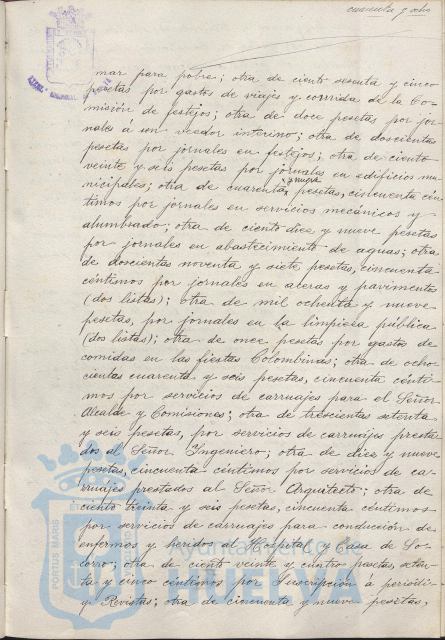 cuarenta y ocho
mar para pobre; otra de ciento sesenta y cinco
pesetas por gastos de viajes y corrida de la Co-
misión de festejos; otra de doce pesetas por jor-
nales á un veedor interino; otra de doscientas
pesetas por jornales en festejos; otra de ciento
veinte y seis pesetas por jornales en edificios mu-
nicipales; otra de cuarenta y nueve pesetas, cincuenta cén-
timos por jornales en servicios mecánicos y
alumbrado; otra de ciento diez y nueve pesetas
por jornales en abastecimiento de aguas; otra
de doscientas noventa y siete pesetas, cincuenta
céntimos por jornales en aceras y pavimentos
(dos listas); otra de mil ochenta y nueve
pesetas, por jornales en la limpieza pública
(dos listas); otra de once pesetas por gastos de
comidas en las fiestas Colombinas; otra de ocho-
cientas cuarenta y seis pesetas, cincuenta cénti-
mos por servicios de carruajes para el Señor
Alcalde y Comisiones; otra de trescientas setenta
y seis pesetas, por servicios de carruajes presta-
dos al Señor Ingeniero; otra de diez y nueve
pesetas, cincuenta céntimos por servicios de ca-
rruajes prestados al Señor Arquitecto; otra de
ciento treinta y seis pesetas, cincuenta céntimos
por servicios de carruajes para conducción de
enfermos y heridos al Hospital y Casa de So-
corro; otra de ciento veinte y cuatro pesetas seten-
ta y cinco céntimos por Suscripción á periódi-
y Revistas; otra de cincuenta y nueve pesetas,
PORTUS MARIS
Ayuntamiento de
HUELVA